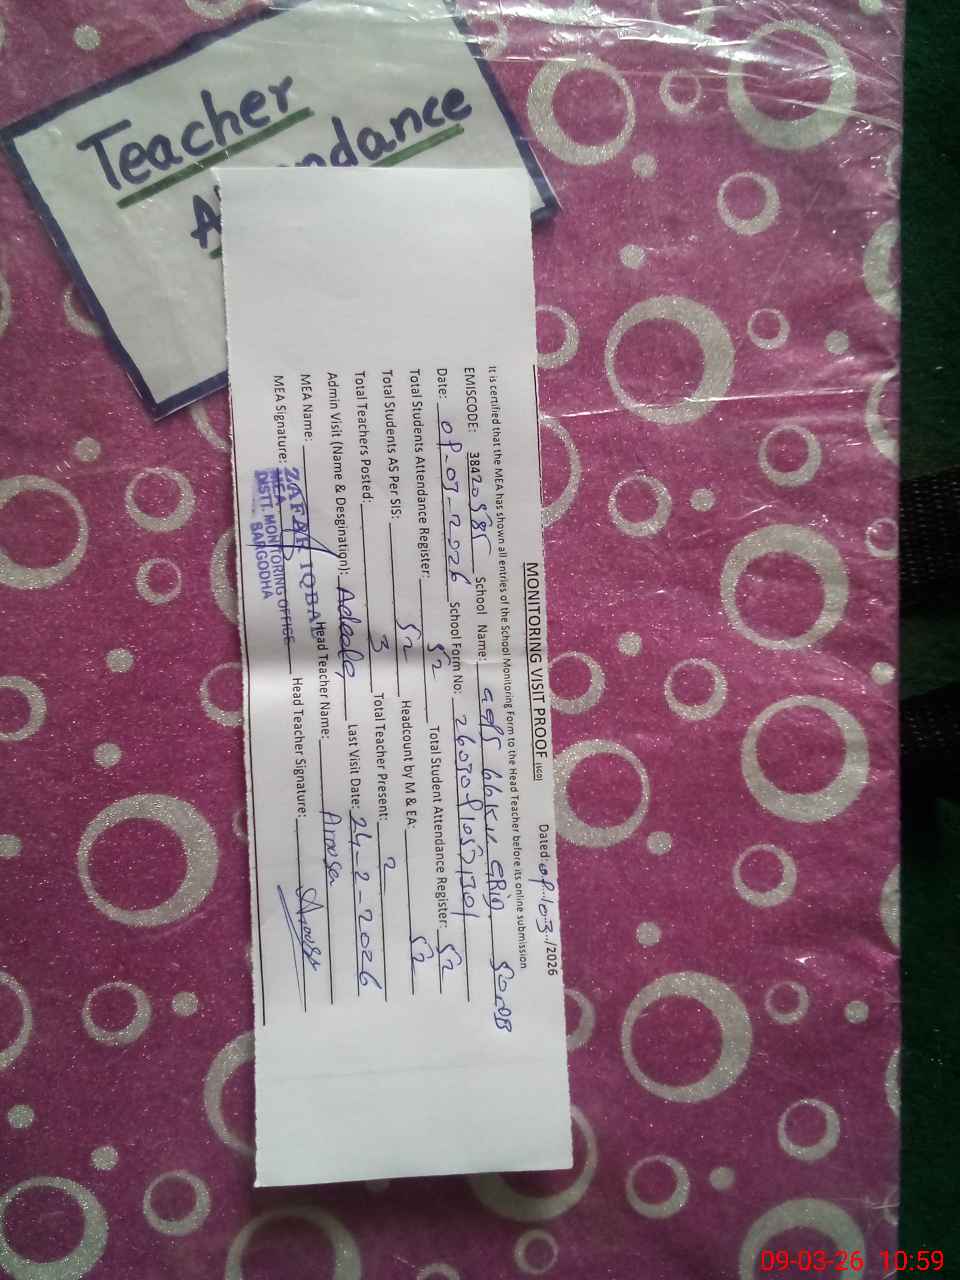 Teacher
Attendance
MONITORING VISIT PROOF (SED)
Dated: 09/03/2026
It is certified that the MEA has shown all entries of the School Monitoring Form to the Head Teacher before its online submission
EMISCODE: 38420585 School Name:
Date: 09-03-2026 School Form No:
Total Students Attendance Register: 52 Total Student Attendance Register: 52
Total Students AS Per SIS: 52 Headcount by M & EA: 52
Total Teachers Posted: 3 Total Teacher Present: 2
Admin Visit (Name & Desgination): Adeela Last Visit Date: 24-2-2026
MEA Name: ZAFAR IQBAL Head Teacher Name: Aroosa
MEA Signature: Head Teacher Signature: Aroosa
MEA
DISTT. MONITORING OFFICE
SARGODHA
09-03-26 10:59